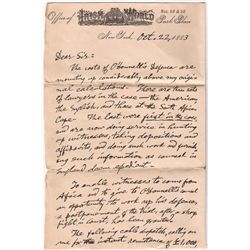 Office of THE IRISH WORLD
Nos. 10 & 12
Park Place
New York, Oct. 22, 1883
Dear Sir:
The costs of O'Donnell's Defence are
mounting up considerably above my orig-
inal calculations. There are three sets
of lawyers in the case — the American,
the English, and those at the South Africa
Cape — The last were first in the case
and are now doing service in hunting
up witnesses, taking depositions and
affidavits, and doing such work and send-
ing such information as counsel in
England deem expedient.
To enable witnesses to come from
Africa and to give to O'Donnell's counsel
an opportunity to work up his defence,
a postponement of the trial, after a sharp
fight in court, has been granted.
The following cable dispatch, calling on
me for this instant remittance of £1,000